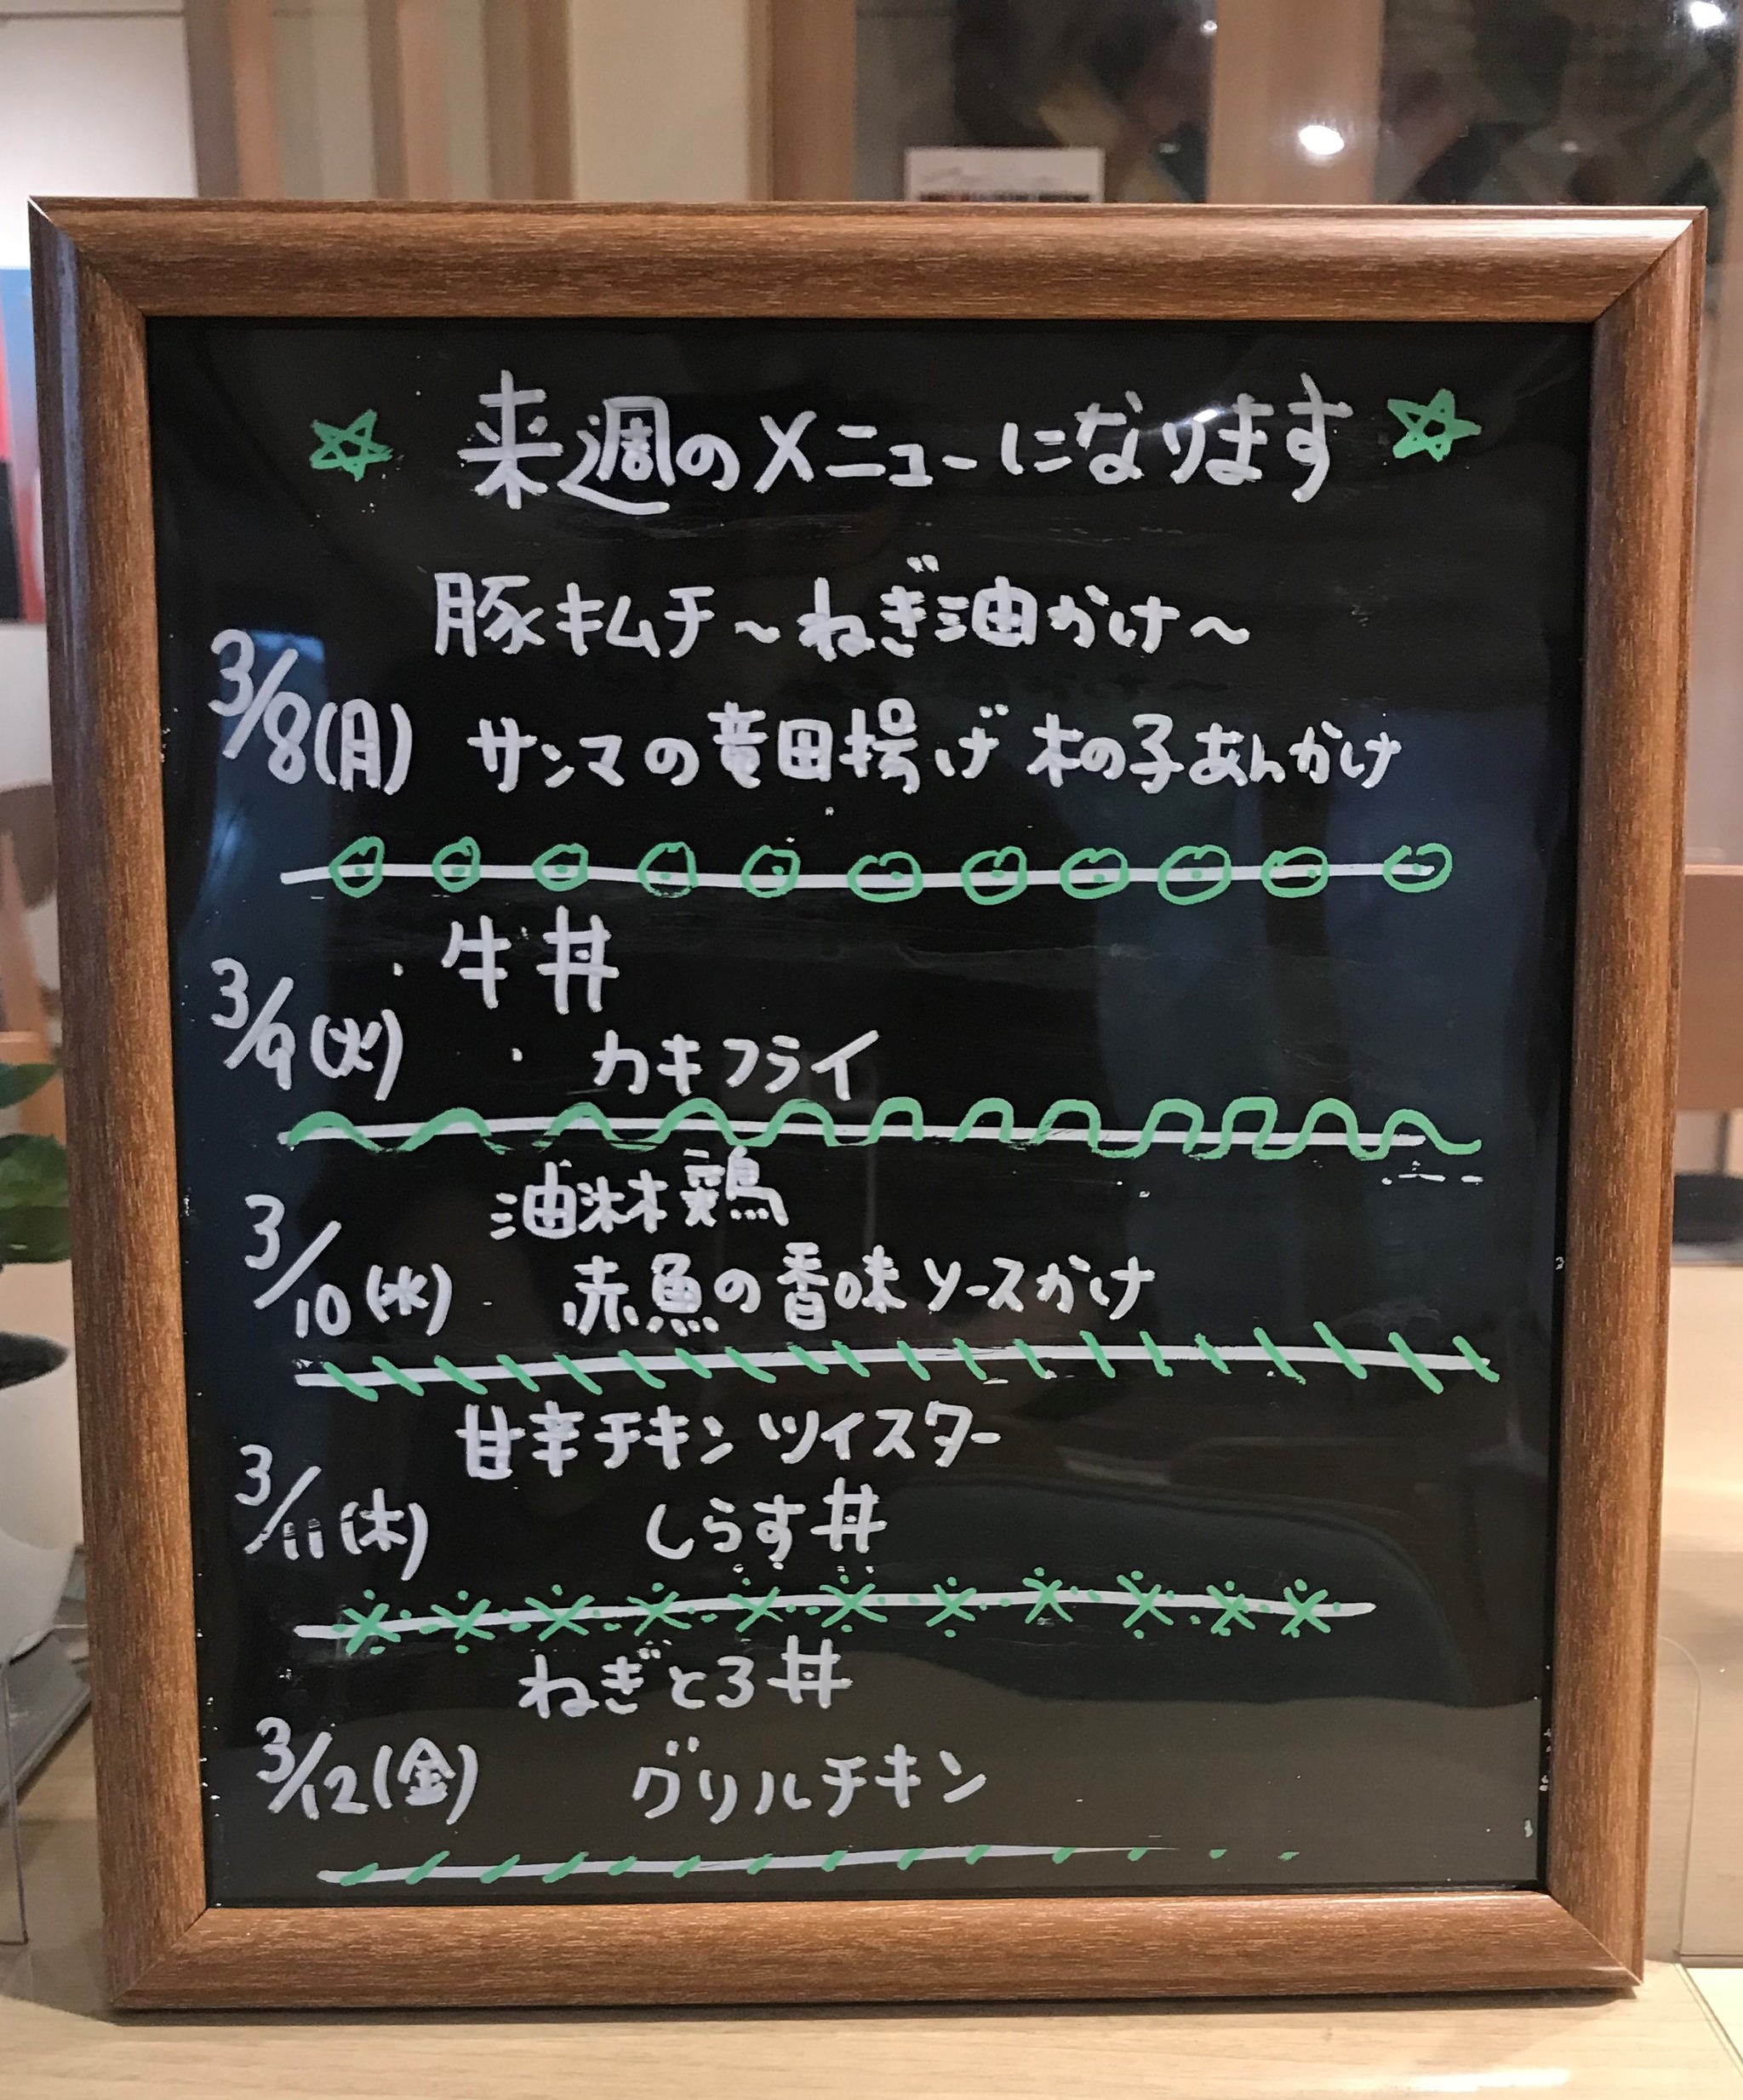 ☆ 来週のメニューになります ☆
豚キムチ～ねぎ油かけ～
3/8(月) サンマの竜田揚げ 木の子あんかけ
牛丼
3/9(火) カキフライ
油淋鶏
3/10(水) 赤魚の香味ソースかけ
甘辛チキンツイスター
3/11(木) しらす丼
ねぎとろ丼
3/12(金) グリルチキン